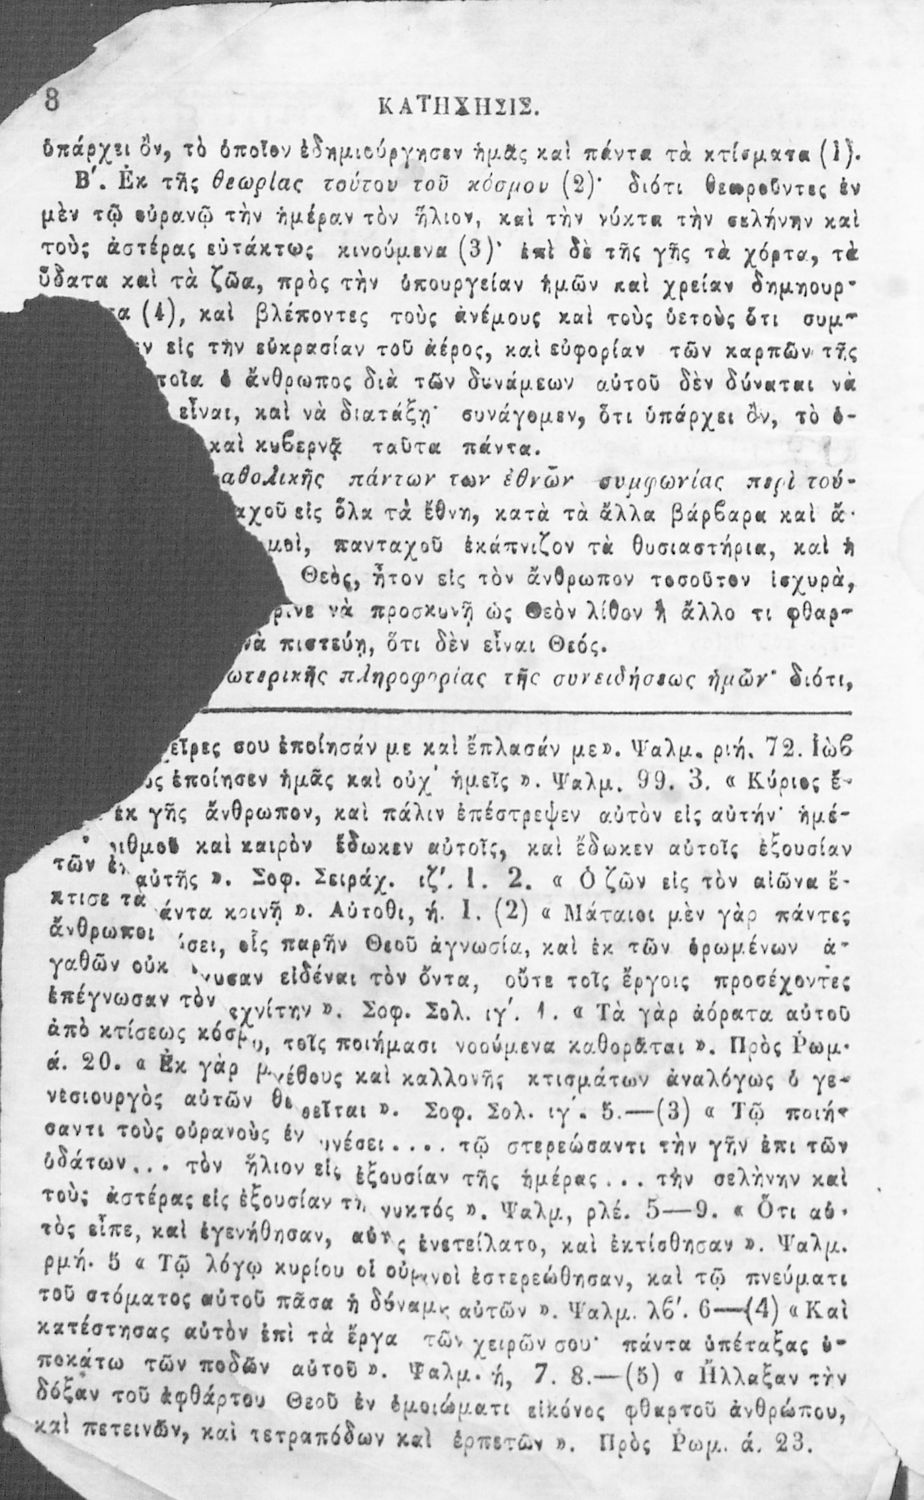 8 ΚΑΤΗΧΗΣΙΣ.
ὑπάρχει ὂν, τὸ ὁποῖον ἐδημιούργησεν ἡμᾶς καὶ πάντα τὰ κτίσματα (1).
Β΄. Ἐκ τῆς θεωρίας τούτου τοῦ κόσμου (2)· διότι θεωροῦντες ἐν
μὲν τῷ οὐρανῷ τὴν ἡμέραν τὸν ἥλιον, καὶ τὴν νύκτα τὴν σελήνην καὶ
τοὺς ἀστέρας εὐτάκτως κινούμενα (3)· ἐπὶ δὲ τῆς γῆς τὰ χόρτα, τὰ
ὕδατα καὶ τὰ ζῶα, πρὸς τὴν ὑπουργείαν ἡμῶν καὶ χρείαν δημηουρ-
τα (4), καὶ βλέποντες τοὺς ἀνέμους καὶ τοὺς ὑετοὺς ὅτι συμ-
εν εἰς τὴν εὐκρασίαν τοῦ ἀέρος, καὶ εὐφορίαν τῶν καρπῶν τῆς
ποῖα ὁ ἄνθρωπος διὰ τῶν δυνάμεων αὑτοῦ δὲν δύναται νὰ
εἶναι, καὶ νὰ διατάξῃ· συνάγομεν, ὅτι ὑπάρχει ὂν, τὸ ὁ-
καὶ κυβερνᾷ ταῦτα πάντα.
αθολικῆς πάντων των ἐθνῶν συμφωνίας περὶ τού-
αχοῦ εἰς ὅλα τὰ ἔθνη, κατὰ τὰ ἄλλα βάρβαρα καὶ ἄ-
μοὶ, πανταχοῦ ἐκάπνιζον τὰ θυσιαστήρια, καὶ ἡ
Θεὸς, ἦτον εἰς τὸν ἄνθρωπον τοσοῦτον ἰσχυρὰ,
ρινε νὰ προσκυνῇ ὡς Θεὸν λίθον ἢ ἄλλο τι φθαρ-
νὰ πιστεύῃ, ὅτι δὲν εἶναι Θεός.
ωτερικῆς πληροφορίας τῆς συνειδήσεως ἡμῶν· διότι,
χεῖρες σου ἐποίησάν με καὶ ἔπλασάν με». Ψαλμ. ριή. 72. Ἰὼβ
ὸς ἐποίησεν ἡμᾶς καὶ οὐχ᾿ ἡμεῖς ». Ψαλμ. 99. 3. « Κύριος ἔ-
ἐκ γῆς ἄνθρωπον, καὶ πάλιν ἐπέστρεψεν αὐτὸν εἰς αὐτήν· ἡμέ-
ριθμοῦ καὶ καιρὸν ἔδωκεν αὐτοῖς, καὶ ἔδωκεν αὐτοῖς ἐξουσίαν
τῶν ἐπ αὐτῆς ». Σοφ. Σειράχ. ιζ΄. 1. 2. « Ὁ ζῶν εἰς τὸν αἰῶνα ἔ-
κτισε τὰ άντα κοινῇ ». Αὐτόθι, ή. 1. (2) « Μάταιοι μὲν γὰρ πάντες
ἄνθρωποι ύσει, οἷς παρῆν Θεοῦ ἀγνωσία, καὶ ἐκ τῶν ὁρωμένων ἀ-
γαθῶν οὐκ υσαν εἰδέναι τὸν ὄντα, οὔτε τοῖς ἔργοις προσέχοντες
ἐπέγνωσαν τὸν εχνίτην ». Σοφ. Σολ. ιγ΄. 1. « Τὰ γὰρ ἀόρατα αὐτοῦ
ἀπὸ κτίσεως κόσμου, τοῖς ποιήμασι νοούμενα καθορᾶται ». Πρὸς Ῥωμ.
ά. 20. « Ἐκ γὰρ μεγέθους καὶ καλλονῆς κτισμάτων ἀναλόγως ὁ γε-
νεσιουργὸς αὐτῶν θεωρεῖται ». Σοφ. Σολ. ιγ΄. 5.—(3) « Τῷ ποιή-
σαντι τοὺς οὐρανοὺς ἐν συνέσει.... τῷ στερεώσαντι τὴν γῆν ἐπι τῶν
ὑδάτων... τὸν ἥλιον εἰς ἐξουσίαν τῆς ἡμέρας... τὴν σελὴνην καὶ
τοὺς ἀστέρας εἰς ἐξουσίαν τῆς νυκτός ». Ψαλμ, ρλέ. 5—9. « Ὅτι αὐ-
τὸς εἶπε, καὶ ἐγενήθησαν, αὐτὸς ἐνετείλατο, καὶ ἐκτίσθησαν ». Ψαλμ.
ρμή. 5 « Τῷ λόγῳ κυρίου οἱ οὐρανοὶ ἐστερεώθησαν, καὶ τῷ πνεύματι
τοῦ στόματος αὐτοῦ πᾶσα ἡ δύναμις αὐτῶν ». Ψαλμ. λβ΄. 6—(4) « Καὶ
κατέστησας αὐτὸν ἐπὶ τὰ ἔργα τῶν χειρῶν σου· πάντα ὑπέταξας ὑ-
ποκάτω τῶν ποδῶν αὐτοῦ ». Ψαλμ. ή, 7. 8.—(5) « Ἤλλαξαν τὴν
δόξαν τοῦ ἀφθάρτου Θεοῦ ἐν ὁμοιώματι εἰκόνος φθαρτοῦ ἀνθρώπου,
καὶ πετεινῶν, καὶ τετραπόδων καὶ ἑρπετῶν ». Πρὸς Ῥωμ. ά. 23.